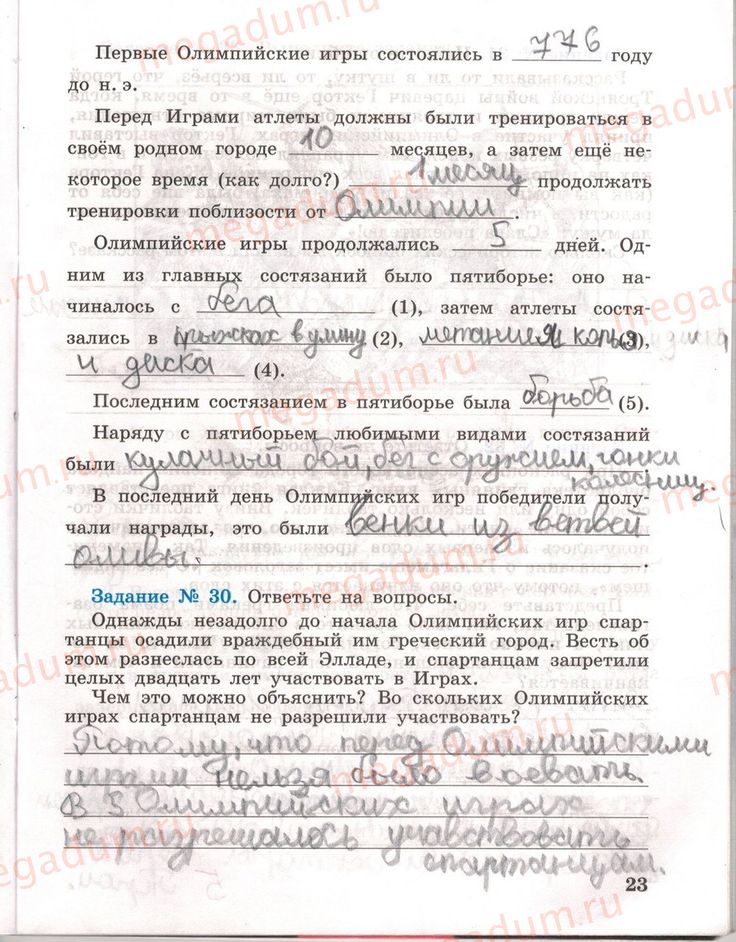 Первые Олимпийские игры состоялись в 776 году
до н. э.
Перед Играми атлеты должны были тренироваться в
своём родном городе 10 месяцев, а затем ещё не-
которое время (как долго?) 1 месяц продолжать
тренировки поблизости от Олимпии.
Олимпийские игры продолжались 5 дней. Од-
ним из главных состязаний было пятиборье: оно на-
чиналось с бега (1), затем атлеты состя-
зались в прыжках в длину (2), метание копья (3),
и диска (4).
Последним состязанием в пятиборье была борьба (5).
Наряду с пятиборьем любимыми видами состязаний
были кулачный бой, бег с оружием, гонки
колесниц.
В последний день Олимпийских игр победители полу-
чали награды, это были венки из ветвей
оливы.
Задание № 30. Ответьте на вопросы.
Однажды незадолго до начала Олимпийских игр спар-
танцы осадили враждебный им греческий город. Весть об
этом разнеслась по всей Элладе, и спартанцам запретили
целых двадцать лет участвовать в Играх.
Чем это можно объяснить? Во скольких Олимпийских
играх спартанцам не разрешили участвовать?
Потому, что перед Олимпийскими
играми нельзя было воевать.
В 5 Олимпийских играх
не разрешалось участвовать
спартанцам.
23
megadum.ru